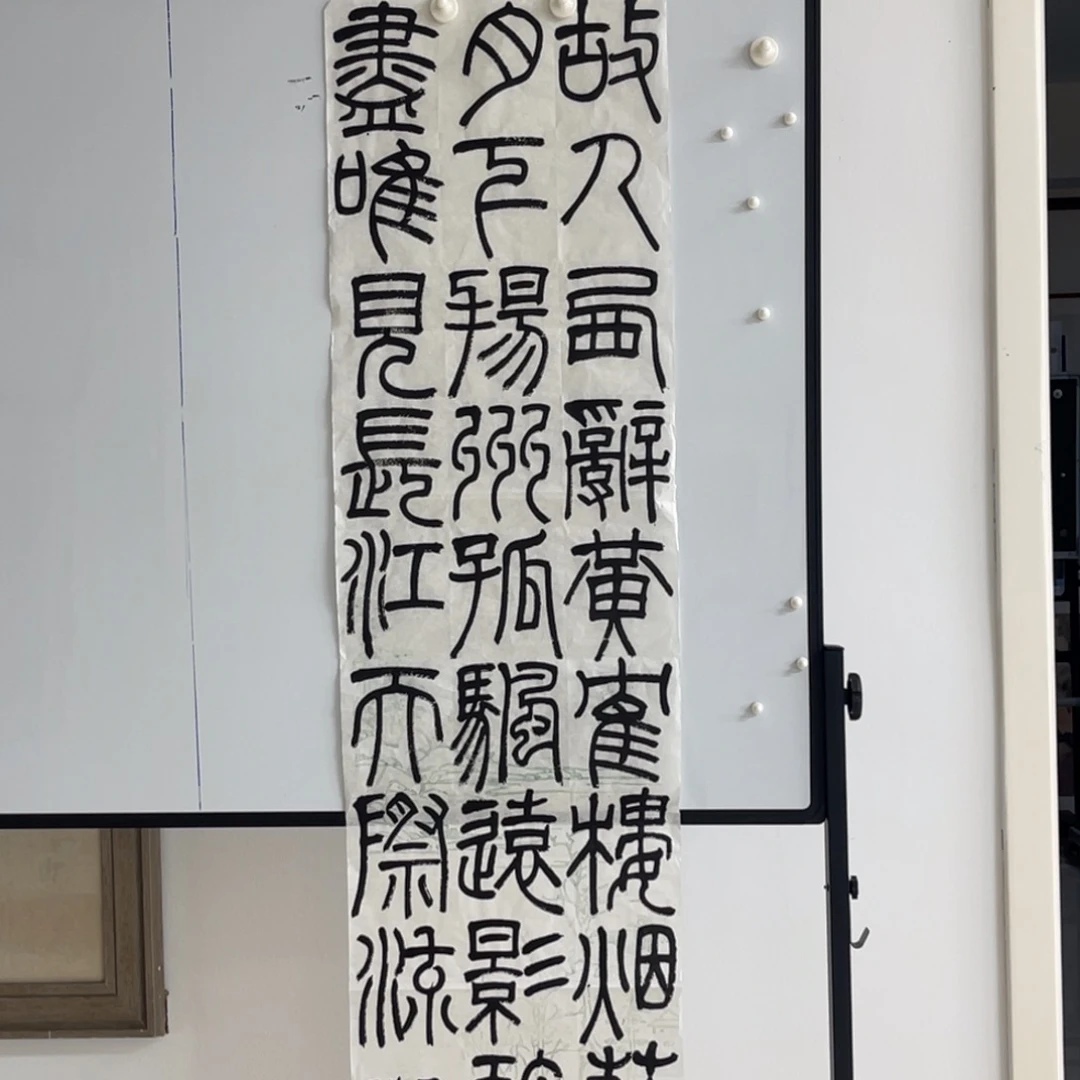 故人西辭黃隺樓烟
月下揚州孤颿遠影
盡唯見長江天際流